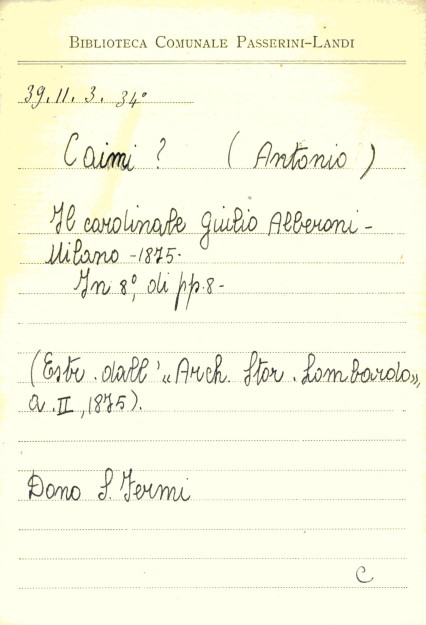 BIBLIOTECA COMUNALE PASSERINI-LANDI
39.11.3.34º
Caimi ? (Antonio)
Il cardinale Giulio Alberoni -
Milano - 1875.
In 8º, di pp. 8 -
(Estr. dall'«Arch. Stor. Lombardo»,
a. II, 1875).
Dono S. Fermi
C